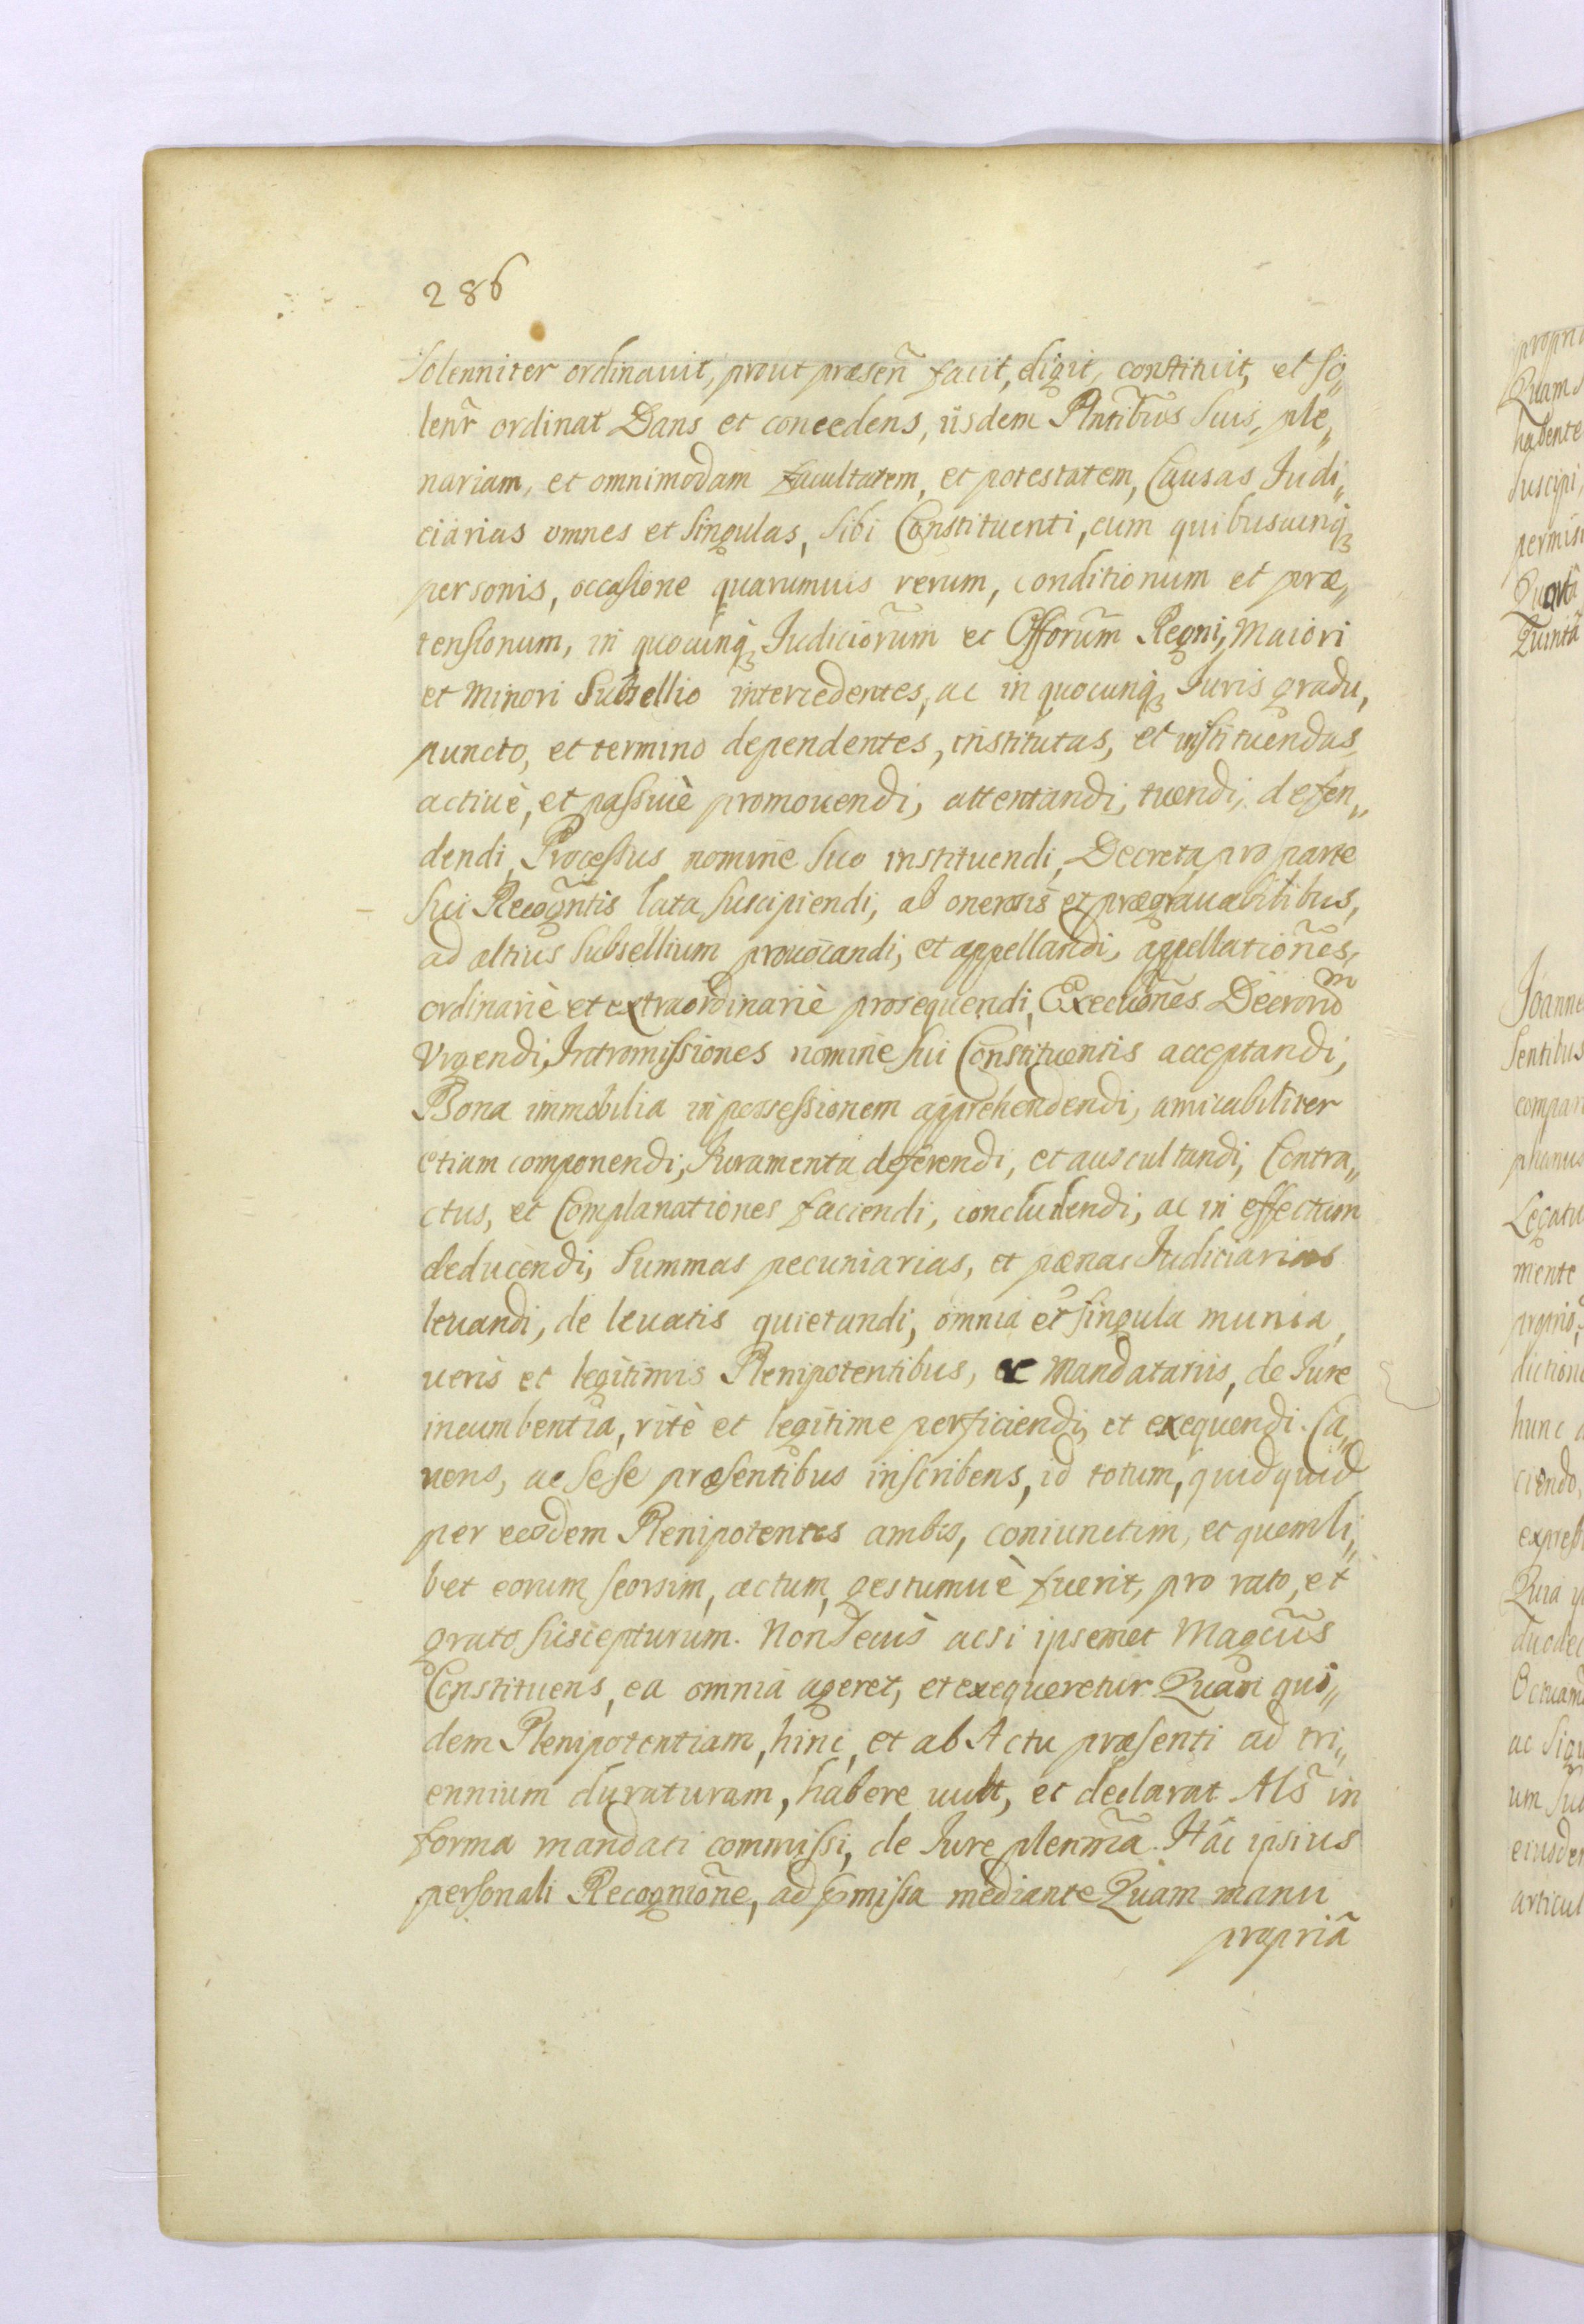 286
Solenniter ordinavit, prout præseñ facit, eligit, constituit, et so„
lenr̃ ordinat Dans et concedens, iisdem Plntib̃us suis, ple„
nariam, et omnimodam facultatem, et potestatem, Causas Judi„
ciarias omnes et singulas, sibi Constituenti, cum quibuscunq3
personis, occasione quarumuis rerum, conditionum et præ„
tensionum, in quocunq3 Judiciorum̃ et Offorum̃ Regni, Maiori
et Minori Subsellio intercedentes, ac in quocunq3 Juris gradu,
puncto, et termino dependentes, institutas, et instituendas,
actiuè, et passiuè promouendi, attentandi, tuendi, defen„
dendi, Processus nomine suo instituendi, Decreta pro parte
sui Recogñtis lata suscipiendi, ab onerosis et prægrauabilibus,
ad altius subsellium prouocandi, et appellandi, appellatiões,
ordinariè et extraordinariè prosequendi, Execuões Decrorũm
Vrgendi, Intromissiones nomine sui Constituentis acceptandi,
Bona immobilia in possessionem apprehendendi, amicabiliter
etiam componendi, Juramenta deferendi, et auscultandi, Contra„
ctus, et Complanationes faciendi, concludendi, ac in effectum
deducendi, Summas pecuniarias, et pænas Judiciarias
leuandi, de leuatis quietandi, omnia et singula munia,
ueris et legitimis Plenipotentibus, ac Mandatariis, de Jure
incumbentia, ritè et legitime perficiendi, et exequendi. Ca„
uens, ac sese præsentibus inscribens, id totum, quidquid
per eosdem Plenipotentes ambos, coniunctim, et quemli„
bet eorum, seorsim, actum, gestumuè fuerit, pro rato, et
grato suscepturum. Non secus acsi ipsemet Magcus̃
Constituens, ea omnia ageret, et exequeretur Quam qui„
dem Plenipotentiam, hinc, et ab Actu præsenti ad tri„
ennium duraturam, habere uult, et declarat Als̃ in
forma mandati commissi, de Jure plenrĩa. Hâc ipsius
personali Recogniõne, ad pmissa mediante Quam manu
propriâ